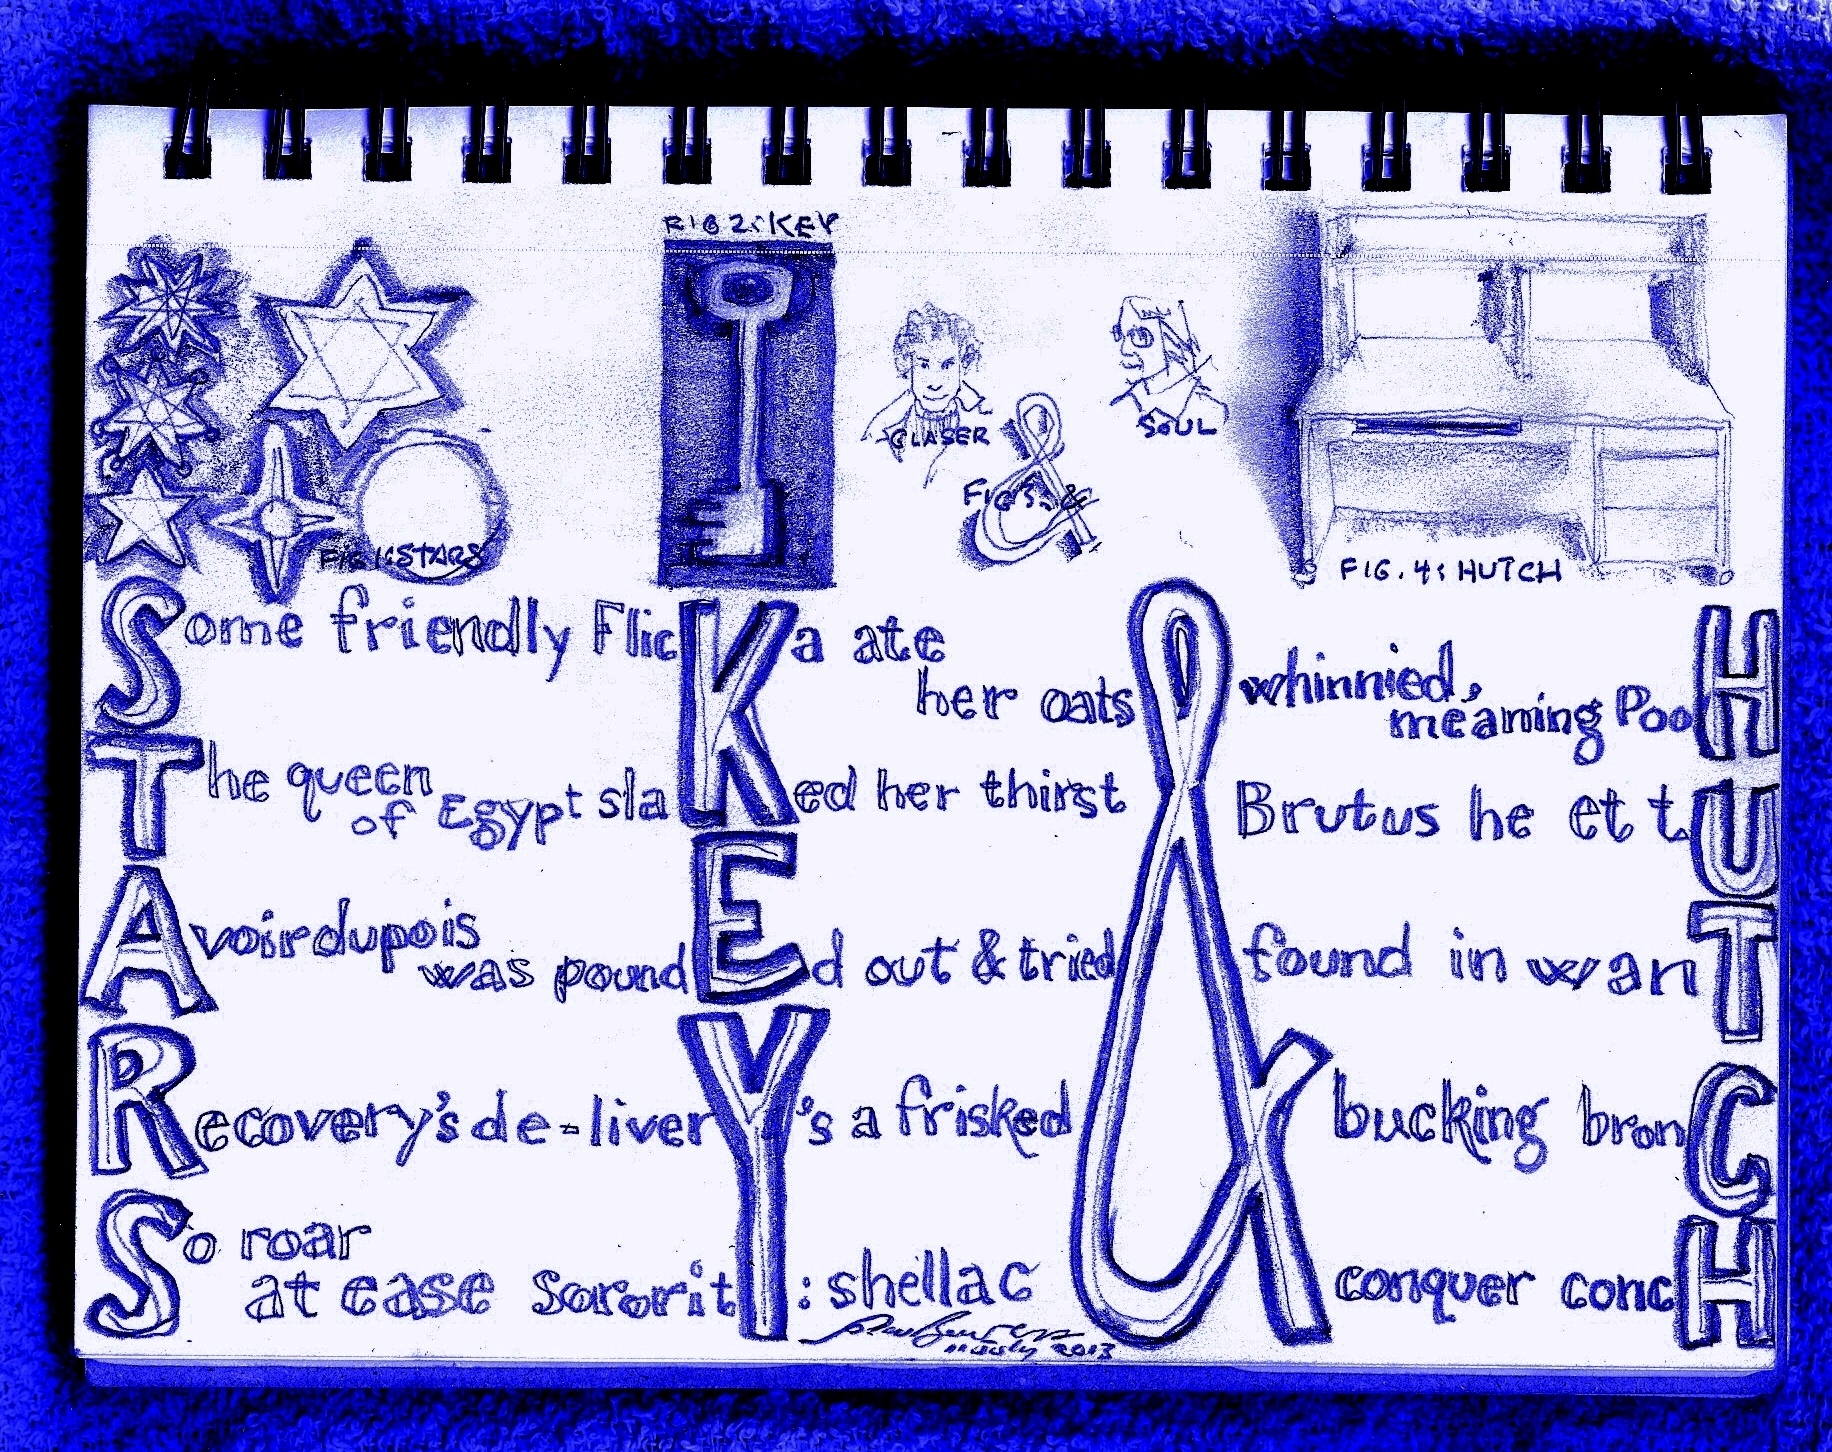 FIG 2: KEY
GLASER
SOUL
FIG 3: &
FIG 1: STARS
FIG. 4: HUTCH
Some friendly FlicKa ate her oats & whinnied, meaning PooH
The queen of Egypt slaKed her thirst & Brutus he et tU
Avoirdupois was poundEd out & tried & found in wanT
Recovery's de-liverY's a frisked & bucking bronC
So roar at ease SororitY: shellac & conquer concH
2013